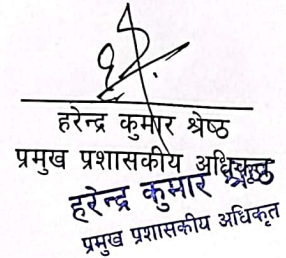 हरेन्द्र कुमार श्रेष्ठ
प्रमुख प्रशासकीय अधिकृत
हरेन्द्र कुमार श्रेष्ठ
प्रमुख प्रशासकीय अधिकृत